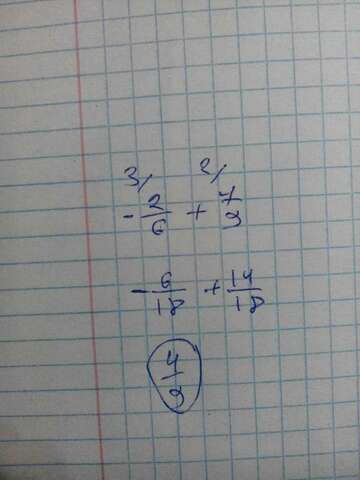 3/ 2/
- 2/6 + 7/9
- 6/18 + 14/18
4/9